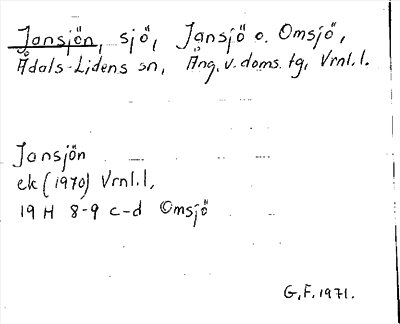 Jansjön, sjö, Jansjö o. Omsjö,
Ådals-Lidens sn, Ång. v. doms. tg, Vrnl. l.
Jansjön
ek (1970) Vrnl. l,
19 H 8-9 c-d Omsjö
G. F. 1971.